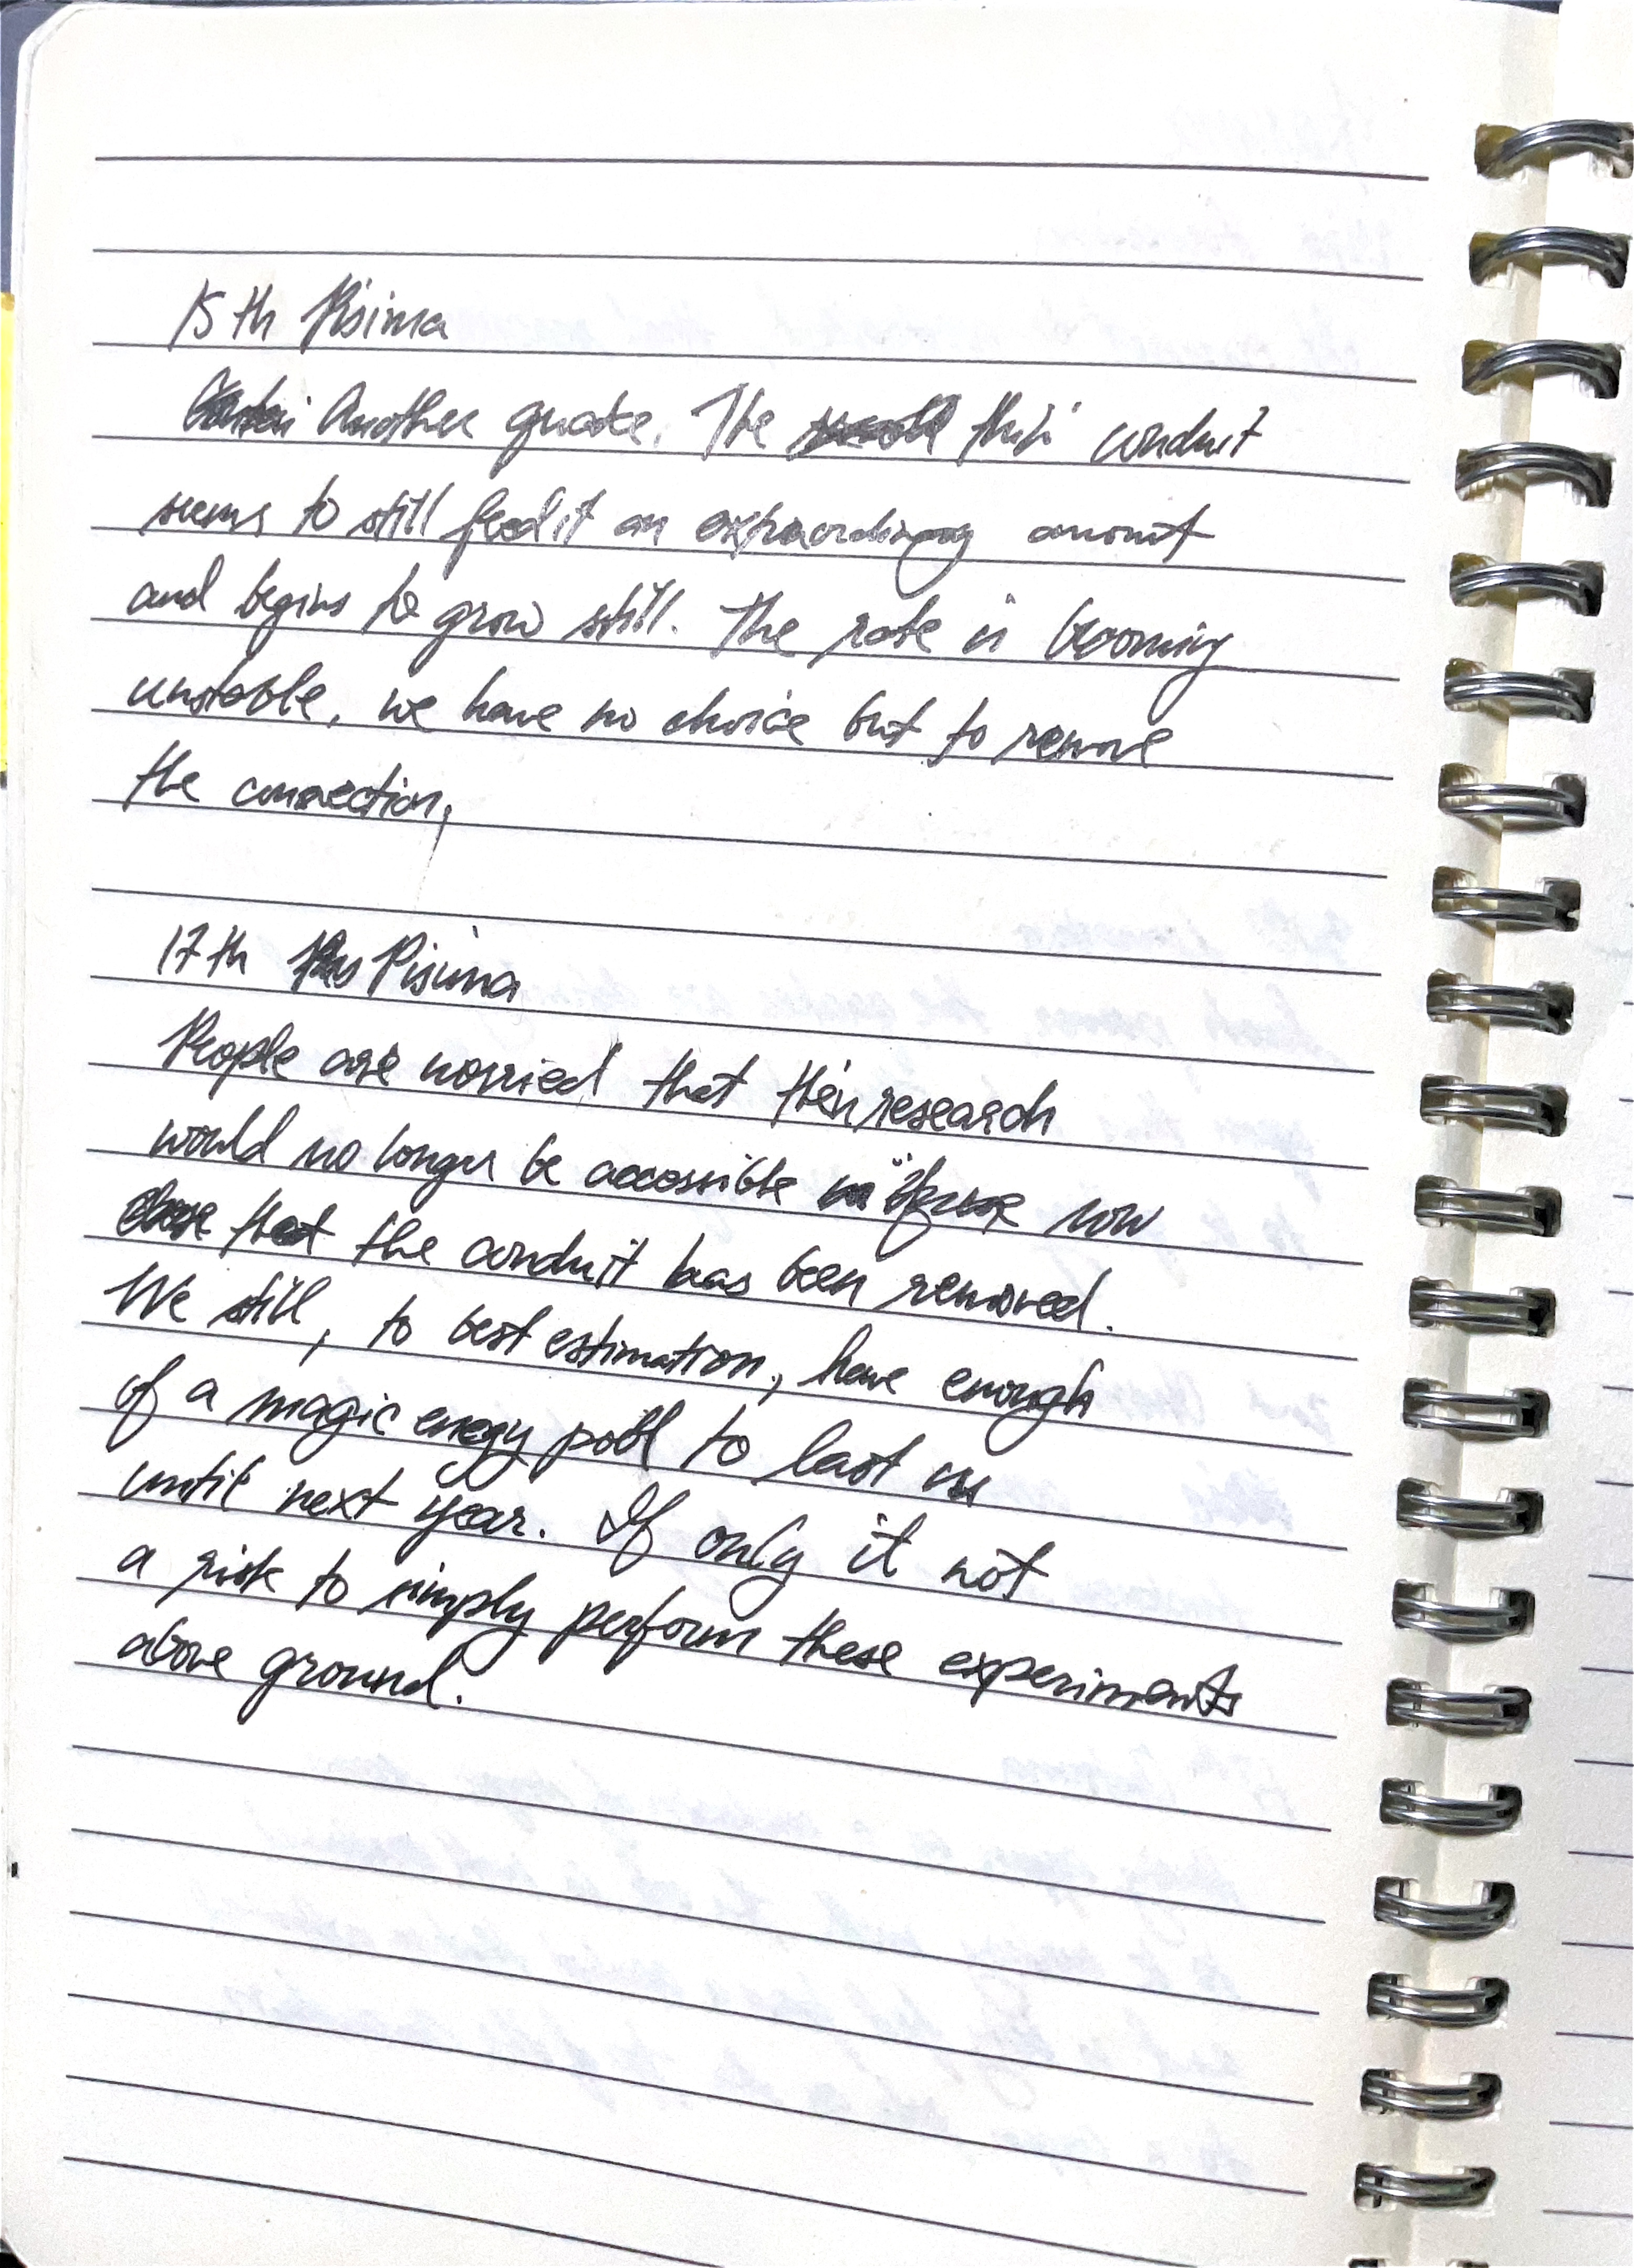 15th Pisima
Another quake. The this conduit
seems to still feed it an extraordinary amount
and begins to grow still. The rate is becoming
unstable, we have no choice but to remove
the connection,
17th Pisima
People are worried that their research
would no longer be accessible now
that the conduit has been removed.
We still, to best estimation, have enough
of a magic enegy pool to last us
until next year. If only it not
a risk to simply perform these experiments
above ground.